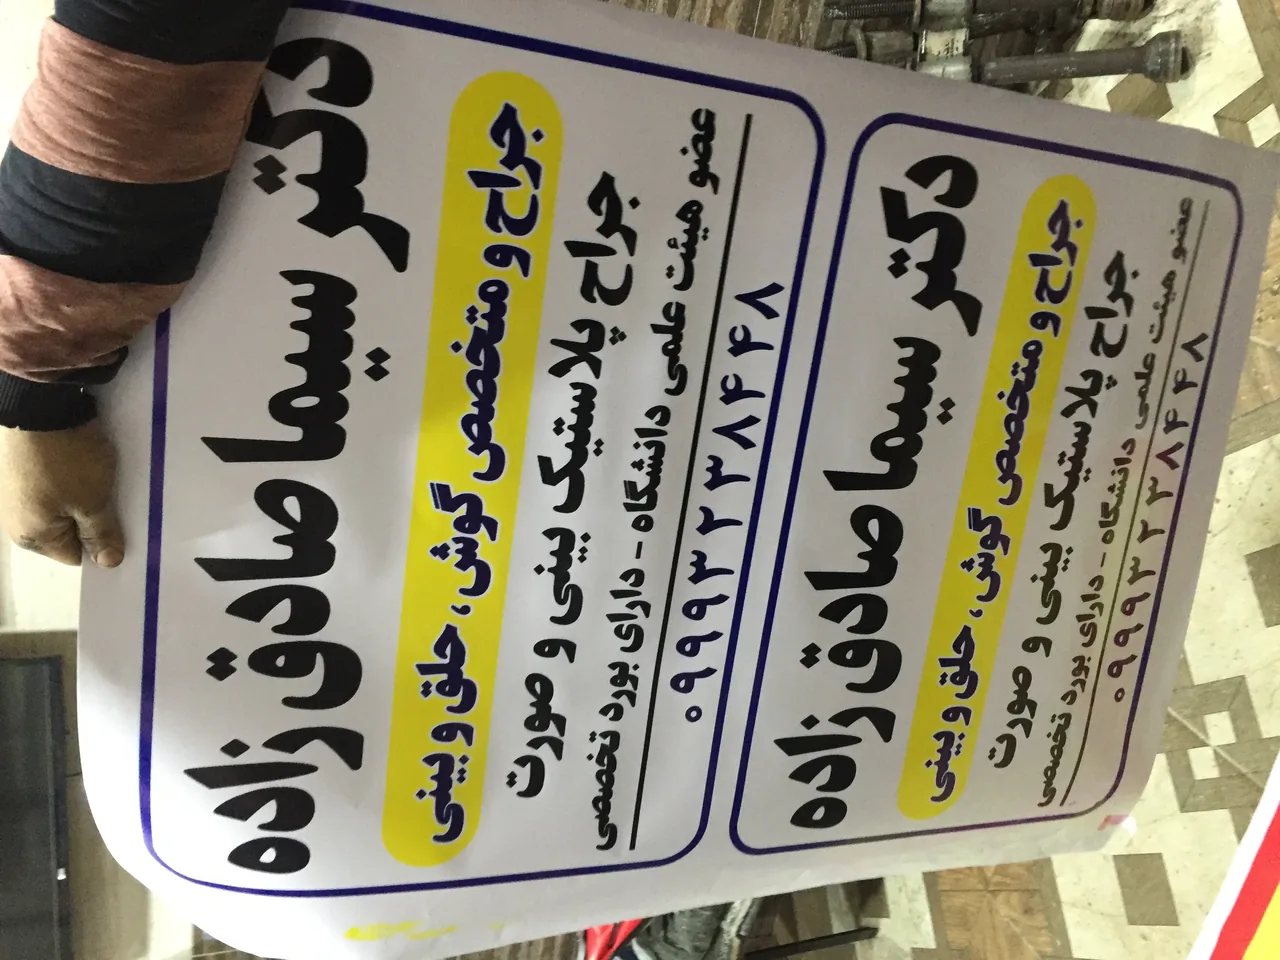 دکتر سیما صادق زاده
جراح و متخصص گوش، حلق و بینی
جراح پلاستیک بینی و صورت
عضو هیئت علمی دانشگاه - دارای بورد تخصصی
۰۹۹۹۳۲۳۸۴۴۸
دکتر سیما صادق زاده
جراح و متخصص گوش، حلق و بینی
جراح پلاستیک بینی و صورت
عضو هیئت علمی دانشگاه - دارای بورد تخصصی
۰۹۹۹۳۲۳۸۴۴۸